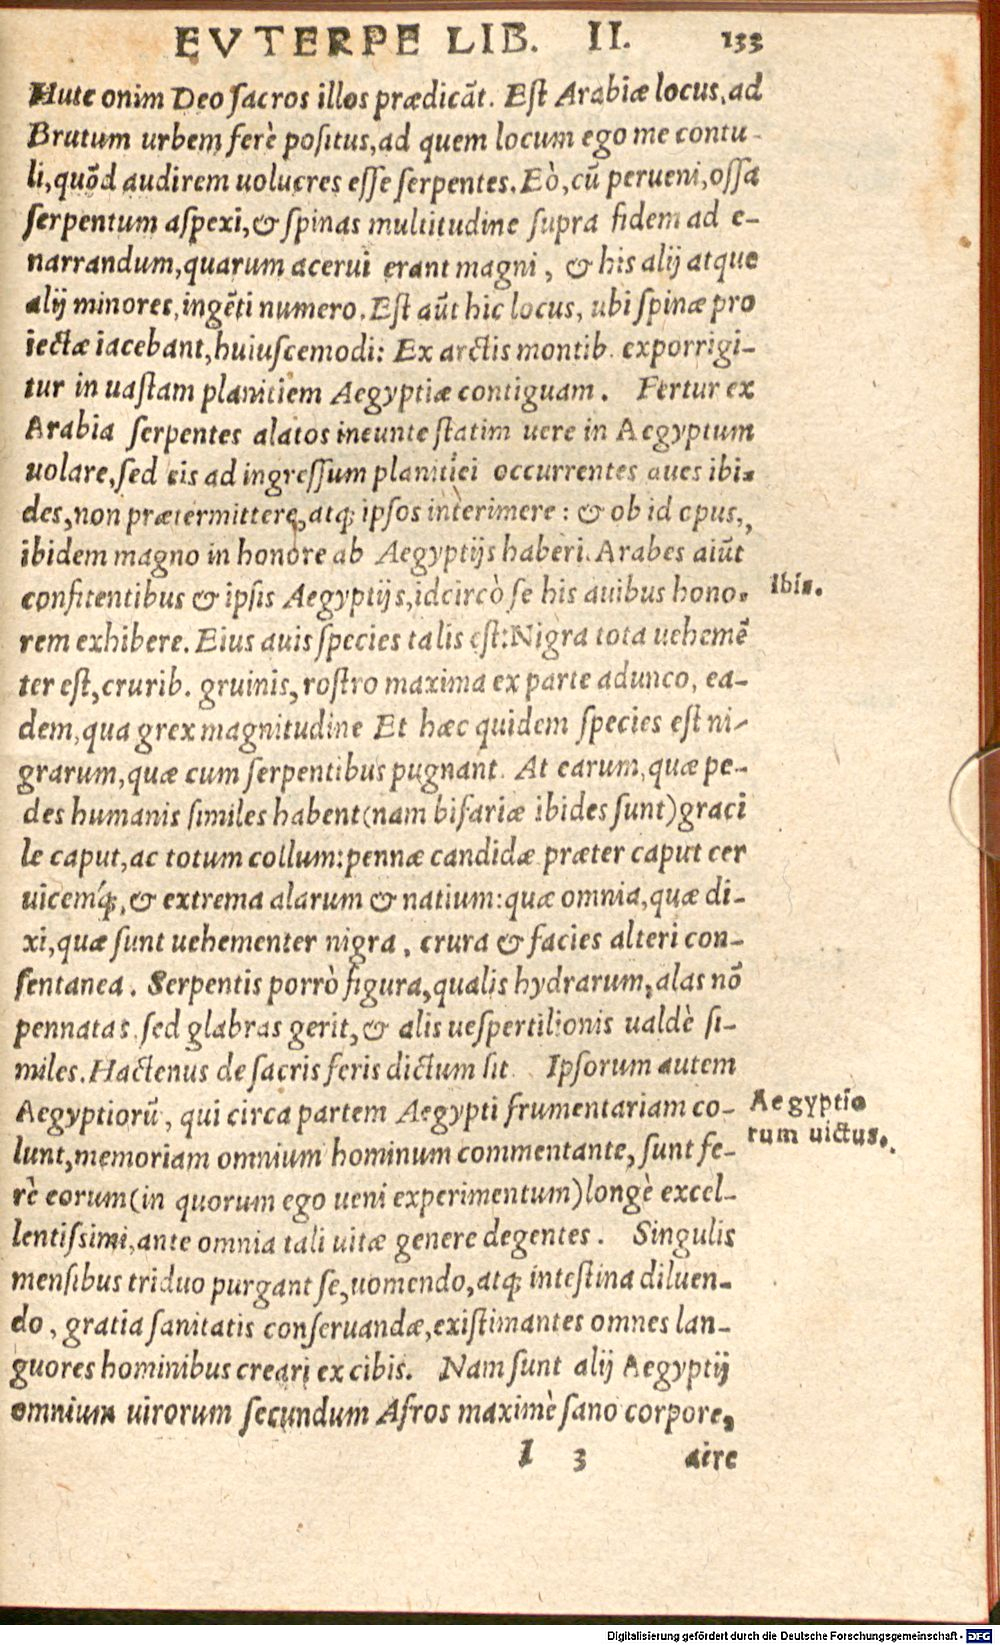 EVTERPE LIB. II. 133
Huic enim Deo ſacros illos prædicāt. Eſt Arabiæ locus, ad
Brutum urbem ferè poſitus, ad quem locum ego me contu-
li, quōd audirem uolucres eſſe ſerpentes. Eò, cū perueni, oſſa
ſerpentum aſpexi, & ſpinas multitudine ſupra fidem ad e-
narrandum, quarum acerui erant magni, & his alij atque
alij minores, ingēti numero. Eſt aūt hic locus, ubi ſpinæ pro
iectæ iacebant, huiuſcemodi: Ex arctis montib. exporrigi-
tur in uaſtam planitiem Aegyptiæ contiguam. Fertur ex
Arabia ſerpentes alatos ineunte ſtatim uere in Aegyptum
uolare, ſed eis ad ingreſſum planitiei occurrentes aues ibi-
des, non prætermittere, atq; ipſos interimere: & ob id opus,
ibidem magno in honore ab Aegyptijs haberi. Arabes aiūt
confitentibus & ipſis Aegyptijs, idcircò ſe his auibus hono-
Ibis.
rem exhibere. Eius auis ſpecies talis eſt: Nigra tota uehemē
ter eſt, crurib. gruinis, roſtro maxima ex parte adunco, ea-
dem, qua grex magnitudine Et hæc quidem ſpecies eſt ni-
grarum, quæ cum ſerpentibus pugnant. At earum, quæ pe-
des humanis ſimiles habent (nam bifariæ ibides ſunt) graci
le caput, ac totum collum: pennæ candidæ præter caput cer
uicemq́;, & extrema alarum & natium: quæ omnia, quæ di-
xi, quæ ſunt uehementer nigra, crura & facies alteri con-
ſentanea. Serpentis porrò figura, qualis hydrarum, alas nō
pennatas ſed glabras gerit, & alis ueſpertilionis ualdè ſi-
miles. Hactenus de ſacris feris dictum ſit. Ipſorum autem
Aegyptiorū, qui circa partem Aegypti frumentariam co-
Aegyptio
rum uictus.
lunt, memoriam omnium hominum commentante, ſunt fe-
rè eorum (in quorum ego ueni experimentum) longè excel-
lentiſſimi, ante omnia tali uitæ genere degentes. Singulis
menſibus triduo purgant ſe, uomendo, atq; inteſtina diluen-
do, gratia ſanitatis conſeruandæ, exiſtimantes omnes lan-
guores hominibus creari ex cibis. Nam ſunt alij Aegyptij
omnium uirorum ſecundum Afros maximè ſano corpore,
I 3 aire
Digitalisierung gefördert durch die Deutsche Forschungsgemeinschaft - DFG